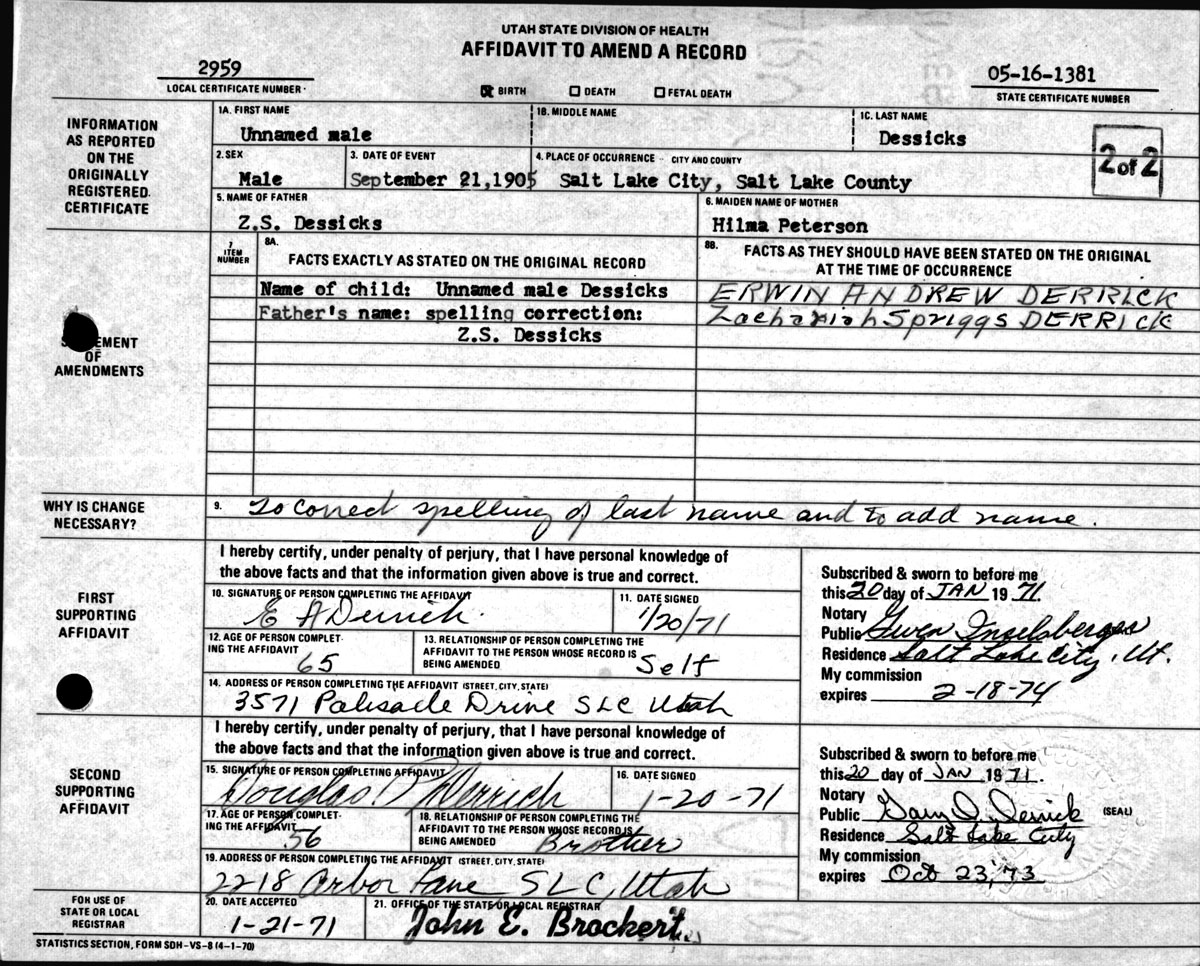 UTAH STATE DIVISION OF HEALTH
AFFIDAVIT TO AMEND A RECORD
2959
LOCAL CERTIFICATE NUMBER
☒ BIRTH ☐ DEATH ☐ FETAL DEATH
05-16-1381
STATE CERTIFICATE NUMBER
INFORMATION
AS REPORTED
ON THE
ORIGINALLY
REGISTERED
CERTIFICATE
1A. FIRST NAME
Unnamed male
1B. MIDDLE NAME
1C. LAST NAME
Dessicks
2 of 2
2. SEX
Male
3. DATE OF EVENT
September 21, 1905
4. PLACE OF OCCURRENCE - CITY AND COUNTY
Salt Lake City, Salt Lake County
5. NAME OF FATHER
Z.S. Dessicks
6. MAIDEN NAME OF MOTHER
Hilma Peterson
OF
AMENDMENTS
7
ITEM
NUMBER
8A.
FACTS EXACTLY AS STATED ON THE ORIGINAL RECORD
8B.
FACTS AS THEY SHOULD HAVE BEEN STATED ON THE ORIGINAL
AT THE TIME OF OCCURRENCE
Name of child: Unnamed male Dessicks
ERWIN ANDREW DERRICK
Father's name: spelling correction:
Zachariah Spriggs DERRICK
Z.S. Dessicks
WHY IS CHANGE
NECESSARY?
9. To correct spelling of last name and to add name.
FIRST
SUPPORTING
AFFIDAVIT
I hereby certify, under penalty of perjury, that I have personal knowledge of
the above facts and that the information given above is true and correct.
10. SIGNATURE OF PERSON COMPLETING THE AFFIDAVIT
E A Derrick.
11. DATE SIGNED
1/20/71
12. AGE OF PERSON COMPLET-
ING THE AFFIDAVIT
65
13. RELATIONSHIP OF PERSON COMPLETING THE
AFFIDAVIT TO THE PERSON WHOSE RECORD IS
BEING AMENDED
Self
14. ADDRESS OF PERSON COMPLETING THE AFFIDAVIT (STREET, CITY, STATE)
3571 Palisade Drive SLC Utah
Subscribed & sworn to before me
this 20 day of JAN 19 71.
Notary
Public Gwen Inselsberger
Residence Salt Lake City, Ut.
My commission
expires 2-18-74
SECOND
SUPPORTING
AFFIDAVIT
I hereby certify, under penalty of perjury, that I have personal knowledge of
the above facts and that the information given above is true and correct.
15. SIGNATURE OF PERSON COMPLETING AFFIDAVIT
Douglas P Derrick
16. DATE SIGNED
1-20-71
17. AGE OF PERSON COMPLET-
ING THE AFFIDAVIT
56
18. RELATIONSHIP OF PERSON COMPLETING THE
AFFIDAVIT TO THE PERSON WHOSE RECORD IS
BEING AMENDED
Brother
19. ADDRESS OF PERSON COMPLETING THE AFFIDAVIT (STREET, CITY, STATE)
2218 Arbor Lane SLC, Utah
Subscribed & sworn to before me
this 20 day of JAN 19 71.
Notary
Public Gary D. Derrick (SEAL)
Residence Salt Lake City
My commission
expires Oct 23, 73
FOR USE OF
STATE OR LOCAL
REGISTRAR
20. DATE ACCEPTED
1-21-71
21. OFFICE OF THE STATE OR LOCAL REGISTRAR
John E. Brockert
STATISTICS SECTION, FORM SDH-VS-8 (4-1-70)